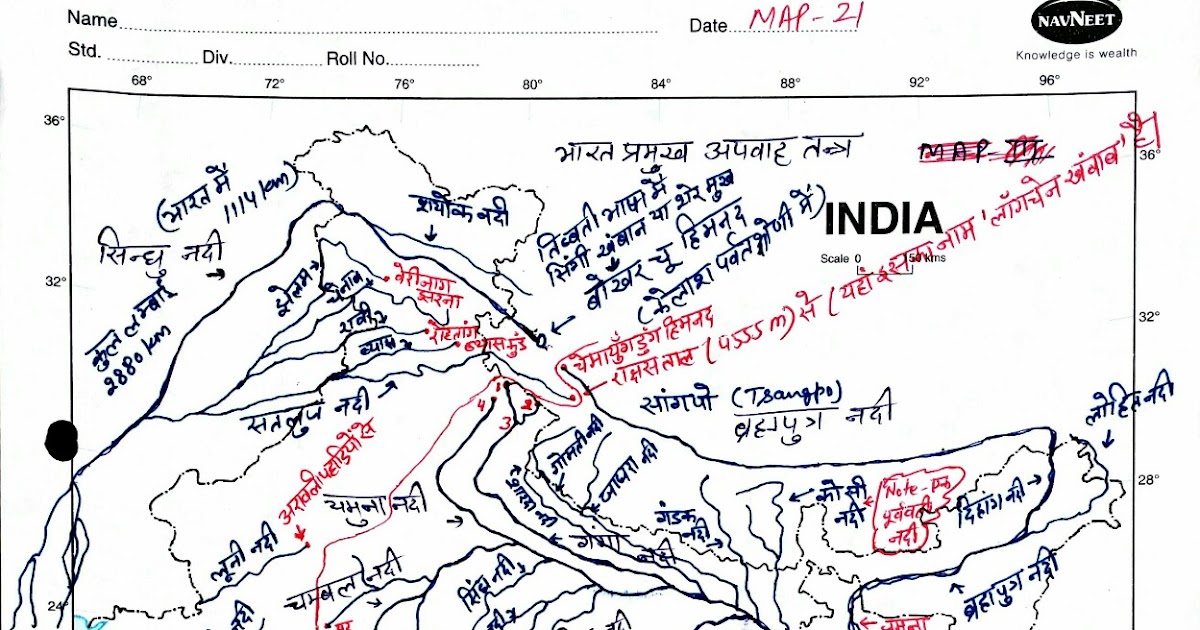 Name
Date MAP-21
NAVNEET
Knowledge is wealth
Std. Div. Roll No.
68° 72° 76° 80° 84° 88° 92° 96°
36°
36°
भारत प्रमुख अपवाह तन्त्र
INDIA
Scale 0 150 kms
(भारत में
1114 km)
सिन्धु नदी
कुल लम्बाई
2880 km
श्योक नदी
तिब्बती भाषा में
सिंगी खंबान या शेर मुख
बोखर चू हिमनद
(कैलाश पर्वत श्रेणी में)
32°
32°
झेलम
चेनाब
वेरीनाग
झरना
रावी
रोहतांग
व्यास
ब्यास कुंड
सतलुज नदी
चेमायुँगडुंग हिमनद
राक्षस ताल (4555 m) से (यहाँ इसका नाम 'लॉगचेन खंबाब' है।
सांगपो (Tsangpo)
ब्रह्मपुत्र नदी
लोहित नदी
1
2
3
4
अरावली पहाड़ियों से
यमुना नदी
लूनी नदी
चम्बल नदी
गोमती नदी
घाघरा नदी
शारदा नदी
गंगा नदी
गंडक
नदी
कोसी
नदी
Note - एक
पूर्ववर्ती
नदी
दिहांग नदी
28°
28°
24°
सिंध नदी
नदी
ब्रह्मपुत्र नदी
जमुना